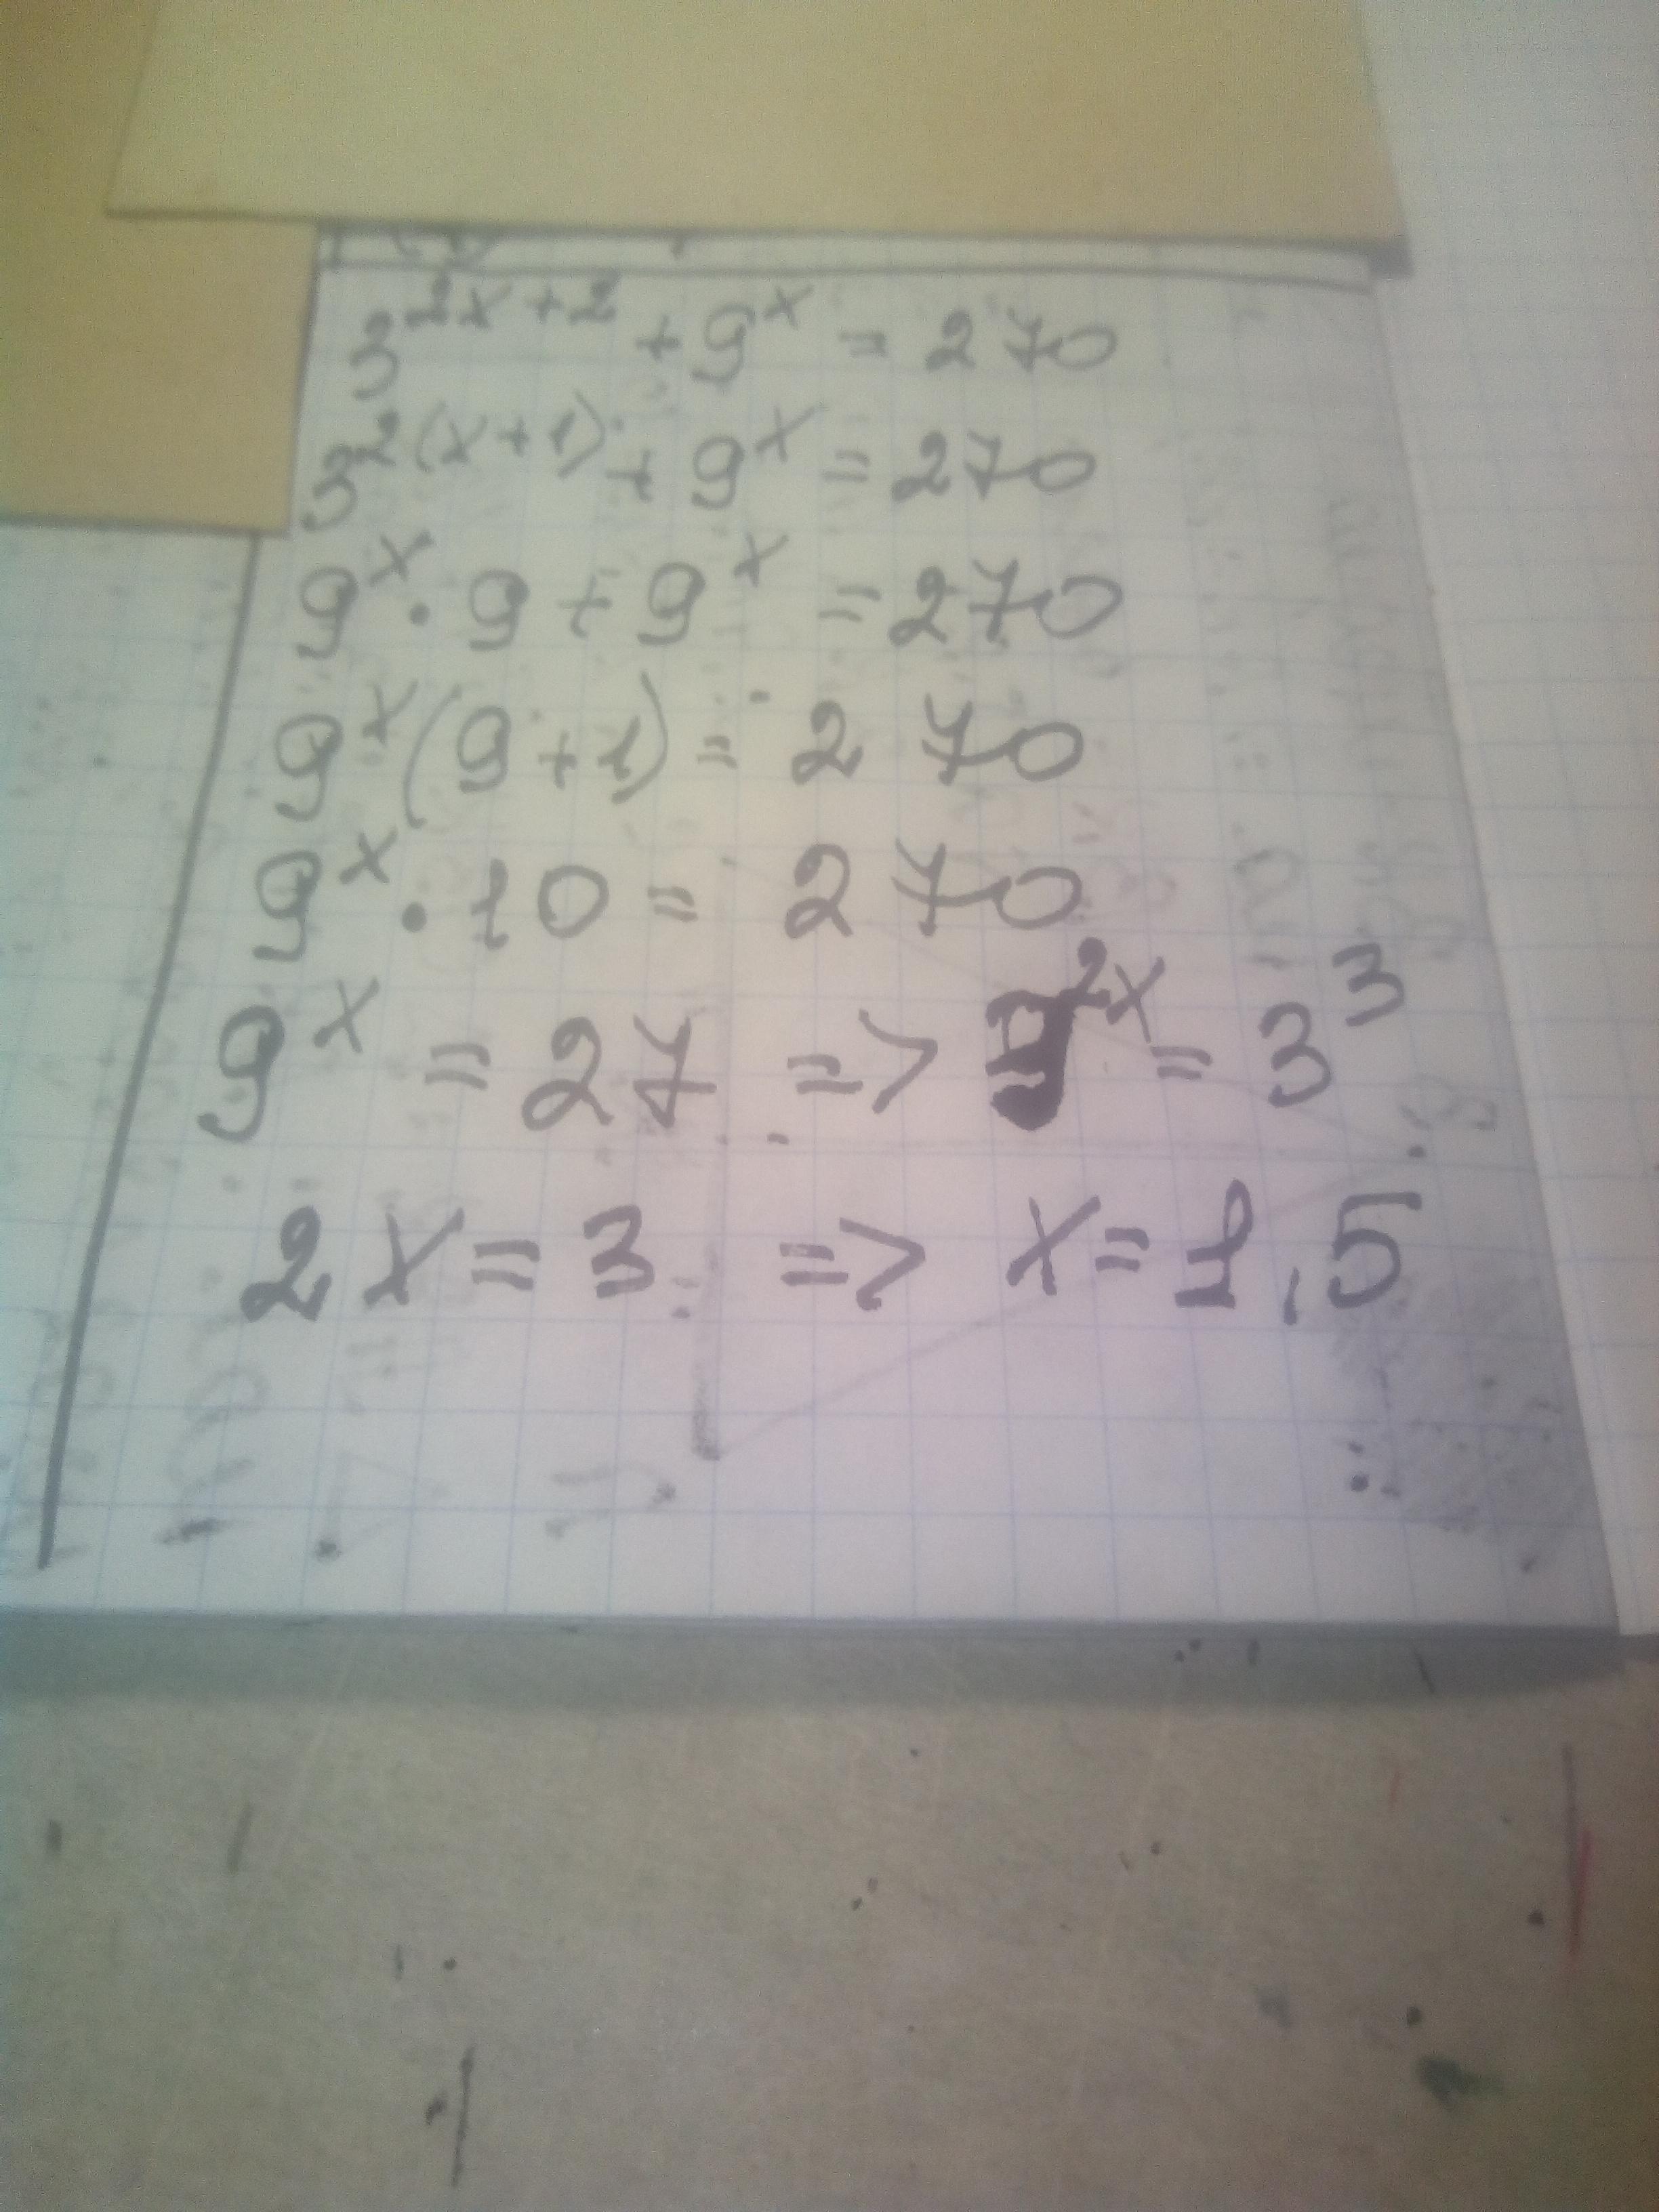 3^{2x+2} + 9^x = 270
3^{2(x+1)} + 9^x = 270
9^x · 9 + 9^x = 270
9^x (9+1) = 270
9^x · 10 = 270
9^x = 27 => 3^{2x} = 3^3
2x = 3 => x = 1,5